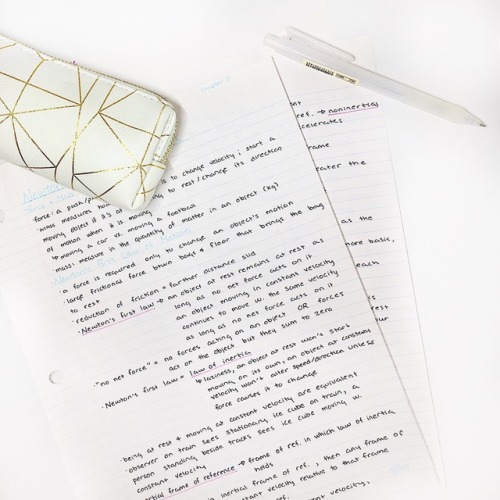 Chapter 5
Newto
Force + M
· force: a push/pu is to change velocity; start a
· mass measures how to rest / change its direction
moving object if it's a
of motion when it is moving
↳ moving a car vs. moving a football
· mass: measure in the quantity of matter in an object (kg)
Newton's First Law of Motion
· a force is required only to change an object's motion
· large frictional force btwn bags & floor that brings the bag
to rest
· reduction of friction = farther distance slid
· Newton's first law → an object at rest remains at rest as
long as no net force acts on it
an object moving in constant velocity
continues to move w. the same velocity
as long as no net force acts on it
· "no net force" = no forces acting on an object OR forces
act on the object but they sum to zero
· Newton's first law = law of inertia
↳ laziness, an object at rest won't start
moving on its own, an object at constant
velocity won't alter speed/direction unless
force causes it to change
· being at rest + moving at constant velocity are equivalent
· observer on train sees stationary ice cube on train, a
person standing beside tracks sees ice cube moving w.
constant velocity
ertial frame of reference → frame of ref. in which law of inertia
holds
inertial frame of ref., then any frame of
nstant velocity relative to that frame
ref. → noninertial
celerates
rame
eater the
as the
more basic,
each